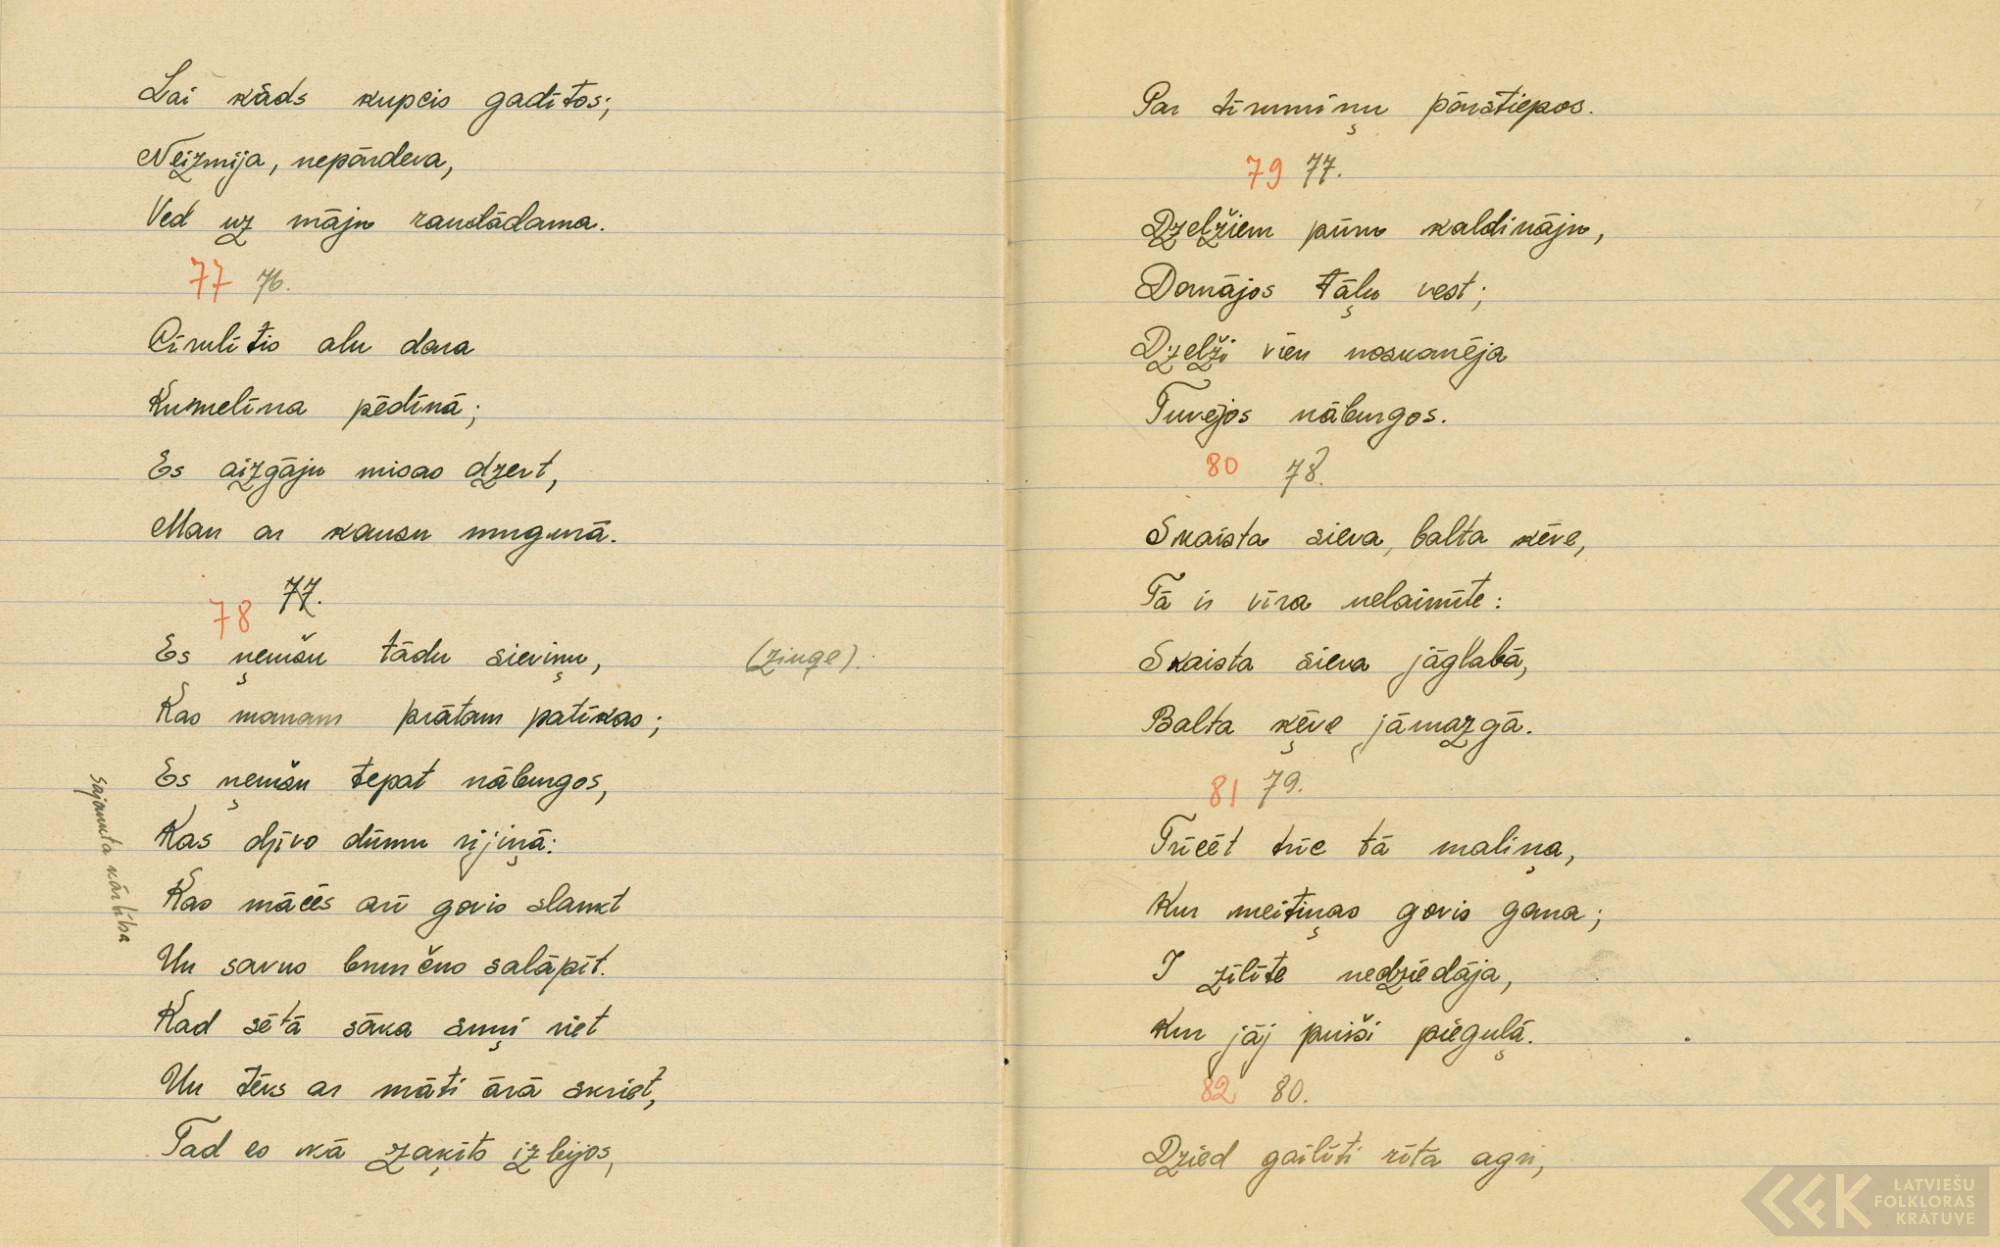 Lai kāds kupcis gadītos;
Neizmija, nepārdeva,
Ved uz māju raudādama.
77 76.
Cīrulītis alu dara
Kumelīna pēdinā;
Es aizgāju misas dzert,
Man ar kausu mugurā.
78 77.
Es ņemšu tādu sieviņu, (ziņģe).
Kas manam prātam patikas;
Es ņemšu tepat nāburgos,
Kas dzīvo dūmu rijiņā:
Kas mācēs arī govis slaukt
Un savus brunčus salāpīt.
Kad sētā sāka suņi riet
Un tēvs ar māti ārā skriet,
Tad es kā zaķīts izbijos,
sajaukta kārtība
Par tīrumiņu pārstiepos.
79 77.
Dzelžiem pūru kaldināju,
Domājos tāļu vest;
Dzelži vien noskanēja
Tuvējos nāburgos.
80 78.
Skaista sieva, balta ķēve,
Tā ir vīra nelaimīte:
Skaista sieva jāglabā,
Balta ķēve jāmazgā.
81 79.
Trīcēt trīc tā maliņa,
Kur meitiņas govis gana;
I zīlīte nedziedāja,
Kur jāj puiši pieguļā.
82 80.
Dzied gailīti rīta agri,
LATVIEŠU
FOLKLORAS
KRĀTUVE